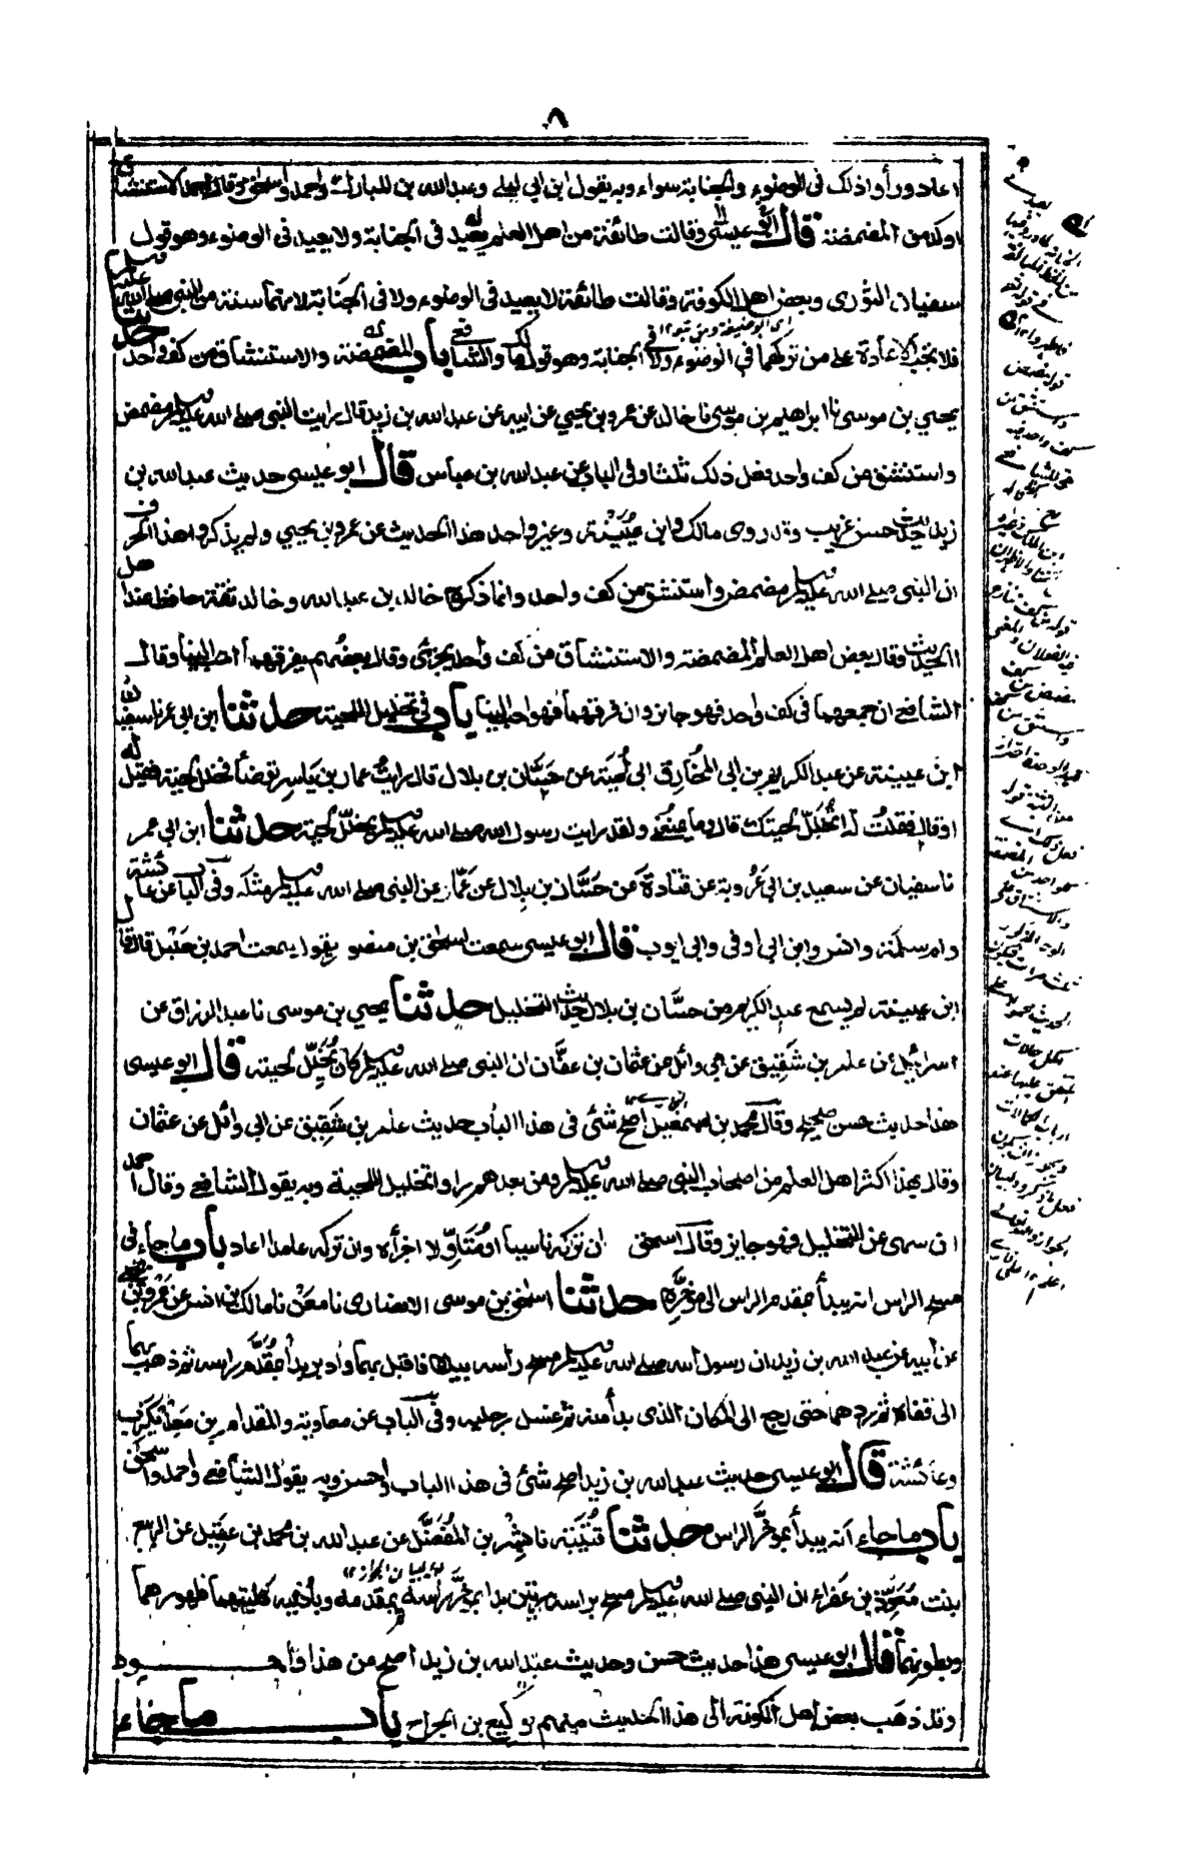 ٨
اعاد ورأوا ذلك فى الوضوء والجنابة سواء وبه يقول ابن ابي ليلى وعبد الله بن المبارك واحمد واسحق وقال احمد الاستنشاق
اوكد من المضمضة قال ابو عيسى وقالت طائفة من اهل العلم يعيد فى الجنابة ولا يعيد فى الوضوء وهو قول
سفيان الثورى وبعض اهل الكوفة وقالت طائفة لا يعيد فى الوضوء ولا فى الجنابة لانهما سنة من النبى صلى الله عليه وسلم
فلا تجب الاعادة على من تركهما فى الوضوء ولا فى الجنابة وهو قول مالك والشافعى باب المضمضة والاستنشاق من كف واحد حدثنا
يحيي بن موسى نا ابراهيم بن موسى نا خالد عن عمرو بن يحيي عن ابيه عن عبد الله بن زيد قال رايت النبى صلى الله عليه وسلم مضمض
واستنشق من كف واحد فعل ذلك ثلثا وفى الباب عن عبد الله بن عباس قال ابو عيسى حديث عبد الله بن
زيد حديث حسن غريب وقد روى مالك وابن عيينة وغير واحد هذا الحديث عن عمرو بن يحيي ولم يذكروا هذا الحرف
ان النبى صلى الله عليه وسلم مضمض واستنشق من كف واحد وانما ذكره خالد بن عبد الله وخالد ثقة حافظ عند اهل
الحديث وقال بعض اهل العلم المضمضة والاستنشاق من كف واحد يجزئ وقال بعضهم يفرقهما احب الينا وقال
الشافعى ان جمعهما فى كف واحد فهو جائز وان فرقهما فهو احب الينا باب فى تخليل اللحية حدثنا ابن ابى عمر نا سفيان
ابن عيينة عن عبد الكريم بن ابى المخارق ابى امية عن حسان بن بلال قال رايت عمار بن ياسر توضأ فخلل لحيته فقيل له
او قال فقلت له اتخلل لحيتك قال وما يمنعنى ولقد رايت رسول الله صلى الله عليه وسلم يخلل لحيته حدثنا ابن ابى عمر
نا سفيان عن سعيد بن ابى عروبة عن قتادة عن حسان بن بلال عن عمار عن النبى صلى الله عليه وسلم مثله وفى الباب عن عائشة
وام سلمة وانس وابن ابى اوفى وابى ايوب قال ابو عيسى سمعت اسحق بن منصور يقول سمعت احمد بن حنبل قال قال
ابن عيينة لم يسمع عبد الكريم من حسان بن بلال حديث التخليل حدثنا يحيي بن موسى نا عبد الرزاق عن
اسرائيل عن عامر بن شقيق عن ابى وائل عن عثمان بن عفان ان النبى صلى الله عليه وسلم كان يخلل لحيته قال ابو عيسى
هذا حديث حسن صحيح وقال محمد بن اسمعيل اصح شئ فى هذا الباب حديث عامر بن شقيق عن ابى وائل عن عثمان
وقال بهذا اكثر اهل العلم من اصحاب النبى صلى الله عليه وسلم ومن بعدهم راوا تخليل اللحية وبه يقول الشافعى وقال احمد
ان سهى عن التخليل فهو جائز وقال اسحق ان تركه ناسيا او متاولا اجزأه وان تركه عامدا اعاد باب ما جاء فى
مسح الراس انه يبدأ بمقدم الراس الى مؤخره حدثنا اسحق بن موسى الانصارى نا معن نا مالك بن انس عن عمرو بن يحيي
عن ابيه عن عبد الله بن زيد ان رسول الله صلى الله عليه وسلم مسح رأسه بيديه فاقبل بهما وادبر بدأ بمقدم راسه ثم ذهب بهما
الى قفاه ثم ردهما حتى رجع الى المكان الذى بدأ منه ثم غسل رجليه وفى الباب عن معاوية والمقدام بن معديكرب
وعائشة قال ابو عيسى حديث عبد الله بن زيد اصح شئ فى هذا الباب واحسن وبه يقول الشافعى واحمد واسحق
باب ما جاء انه يبدأ بمؤخر الراس حدثنا قتيبة نا بشر بن المفضل عن عبد الله بن محمد بن عقيل عن الربيع
بنت معوذ بن عفراء ان النبى صلى الله عليه وسلم مسح براسه مرتين بدا بمؤخر رأسه ثم بمقدمه وباذنيه كلتيهما ظهورهما
وبطونهما قال ابو عيسى هذا حديث حسن وحديث عبد الله بن زيد اصح من هذا واجود
وقد ذهب بعض اهل الكوفة الى هذا الحديث منهم وكيع بن الجراح باب ما جاء